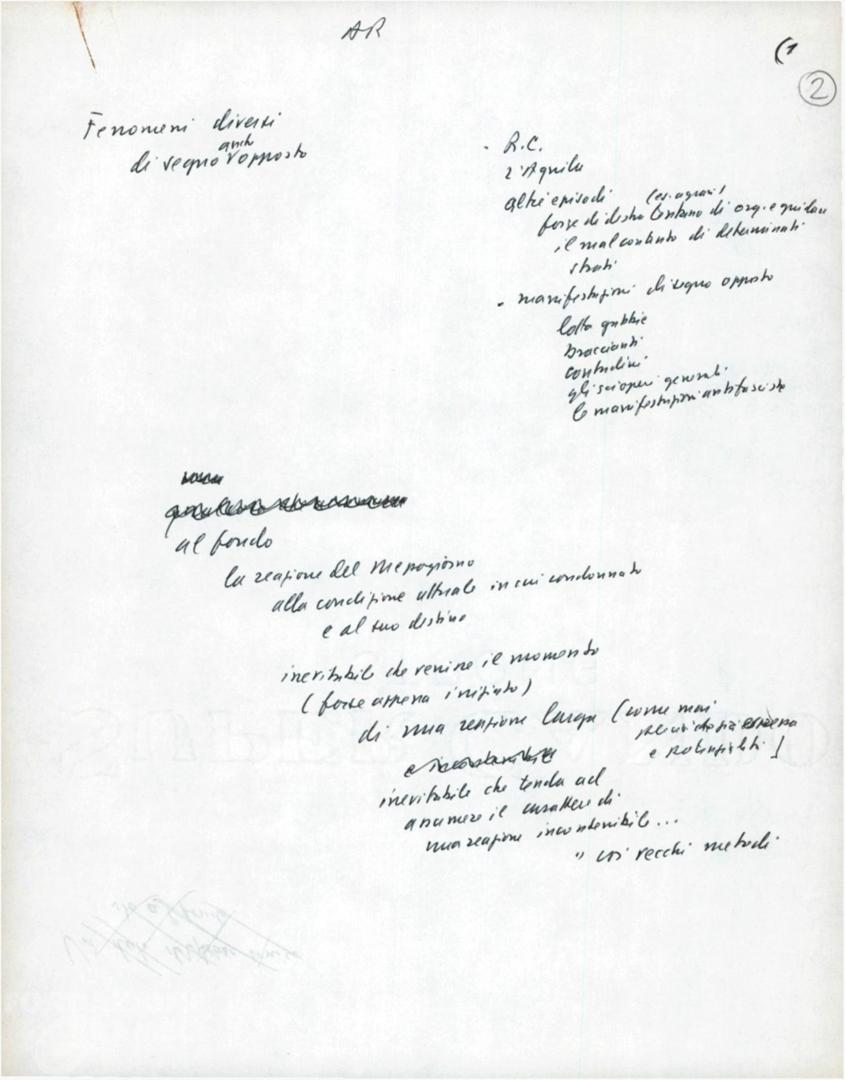 AR
(1
2
Fenomeni diversi
anche
di segno opposto
- R.C.
L'Aquila
altri episodi (es. agrari)
forze di destra tentano di org. e guidare
il malcontento di determinati
strati
- manifestazioni di segno opposto
lotta gabbie
braccianti
contadini
gli scioperi generali
le manifestazioni antifasciste
al fondo
la reazione del Mezzogiorno
alla condizione attuale in cui condannato
e al suo destino
inevitabile che venisse il momento
(forse appena iniziato)
di una reazione larga (come mai
e potenziali)
inevitabile che tenda ad
assumere il carattere di
una reazione incontenibile...
" coi vecchi metodi